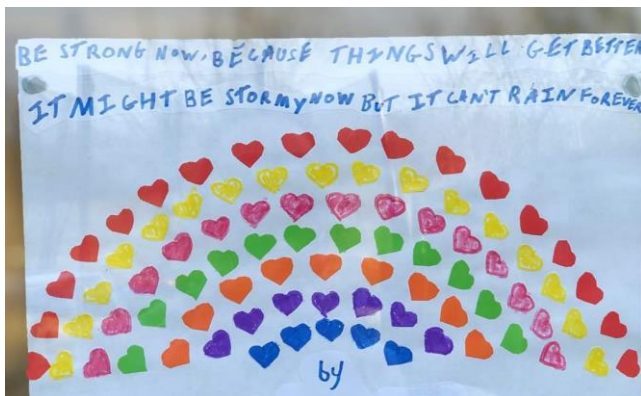 BE STRONG NOW, BECAUSE THINGS WILL GET BETTER
IT MIGHT BE STORMY NOW BUT IT CAN'T RAIN FOREVER
by